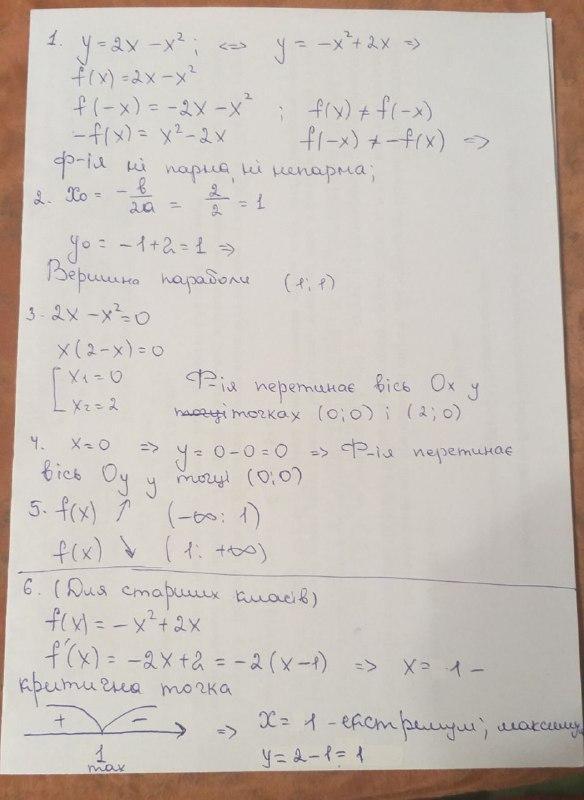 1. y = 2x − x²; <=> y = −x² + 2x =>
f(x) = 2x − x²
f(−x) = −2x − x² ; f(x) ≠ f(−x)
−f(x) = x² − 2x f(−x) ≠ −f(x) =>
Ф-ія ні парна, ні непарна;
2. x₀ = −b/2a = 2/2 = 1
y₀ = −1 + 2 = 1 =>
Вершина параболи (1; 1)
3. 2x − x² = 0
x(2 − x) = 0
[ x₁ = 0
x₂ = 2
Ф-ія перетинає вісь Ox у
точках (0; 0) і (2; 0)
4. x = 0 => y = 0 − 0 = 0 => Ф-ія перетинає
вісь Oy у точці (0; 0)
5. f(x) ↗ (−∞: 1)
f(x) ↘ (1: +∞)
6. (Для старших класів)
f(x) = −x² + 2x
f'(x) = −2x + 2 = −2(x − 1) => x = 1 −
критична точка
+ −
=> x = 1 - екстремум; максимум
1
max
y = 2 − 1 = 1